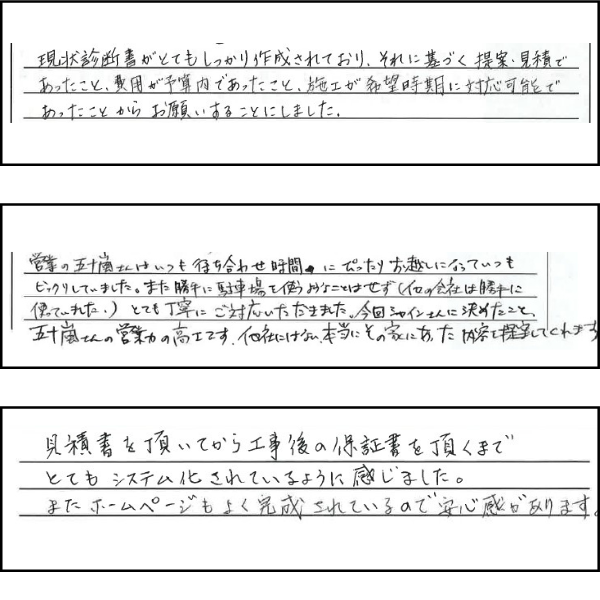 現状診断書がとてもしっかり作成されており、それに基づく提案・見積で
あったこと、費用が予算内であったこと、施工が希望時期に対応可能で
あったことからお願いすることにしました。
営業の五十嵐さんはいつも待ち合わせ時間にぴったりお越しになっていつも
ビックリしていました。また勝手に駐車場を使うようなことはせず(他の会社は勝手に
使っていました。)とても丁寧にご対応いただきました。今回シャインさんに決めたこと、
五十嵐さんの営業力の高さです。他社にはない本当にその家にあった内容を提案してくれます
見積書を頂いてから工事後の保証書を頂くまで
とてもシステム化されているように感じました。
またホームページもよく完成されているので安心感があります。